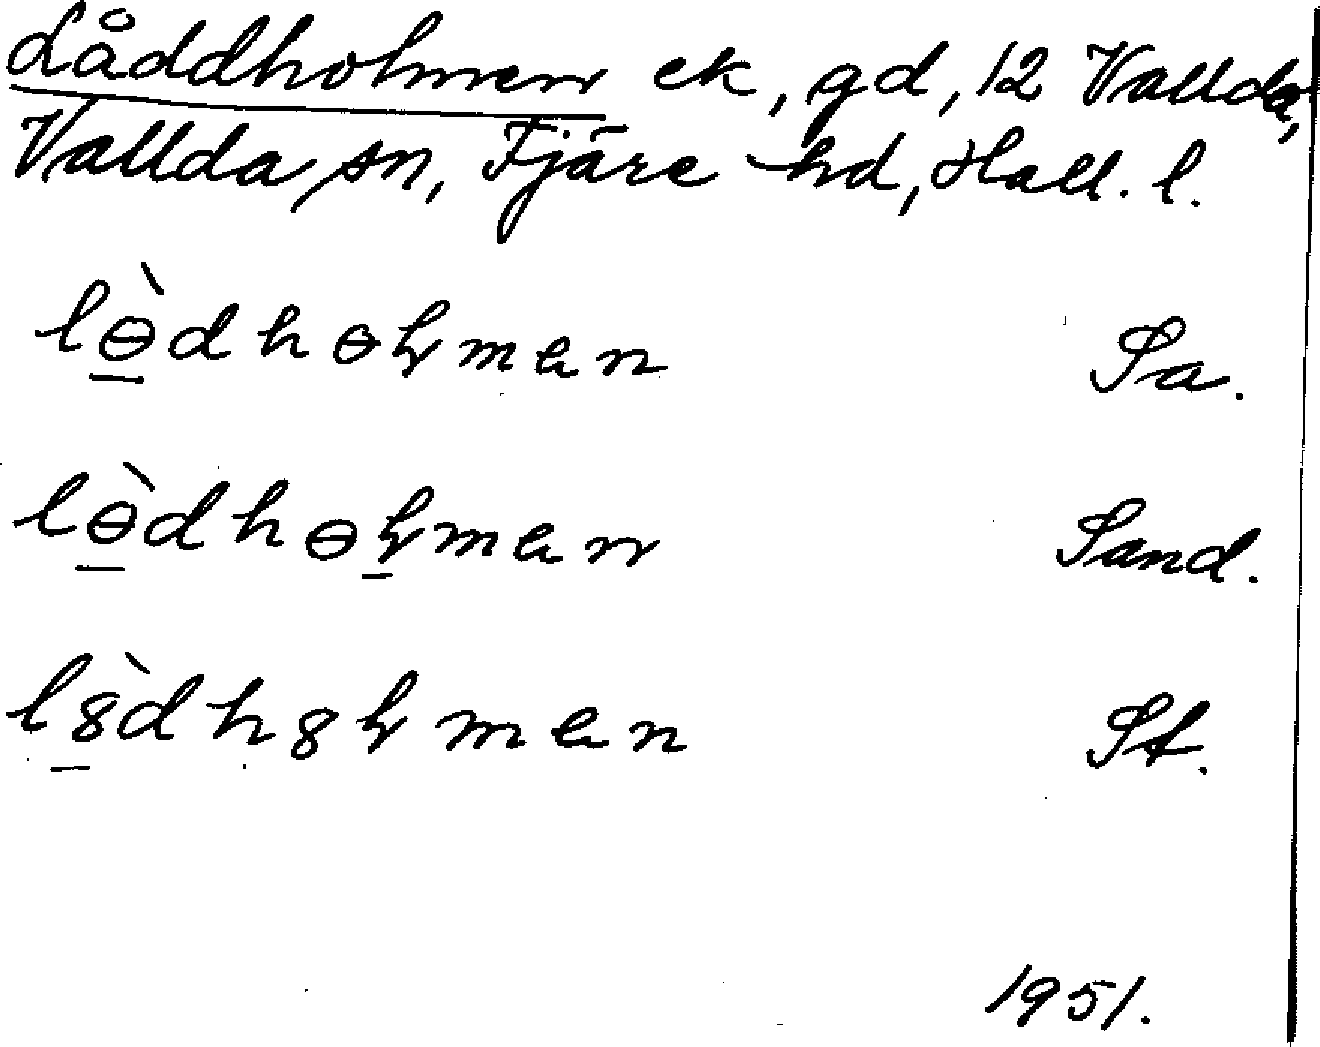 Låddholmen ek, gd, 12 Vallda,
Vallda sn, Fjäre hd, Hall. l.
lɵ̱̀dhɵɫmen Sa.
lɵ̱̀dhɵɫ̱men Sand.
l8̱̀dh8ɫmen St.
1951.